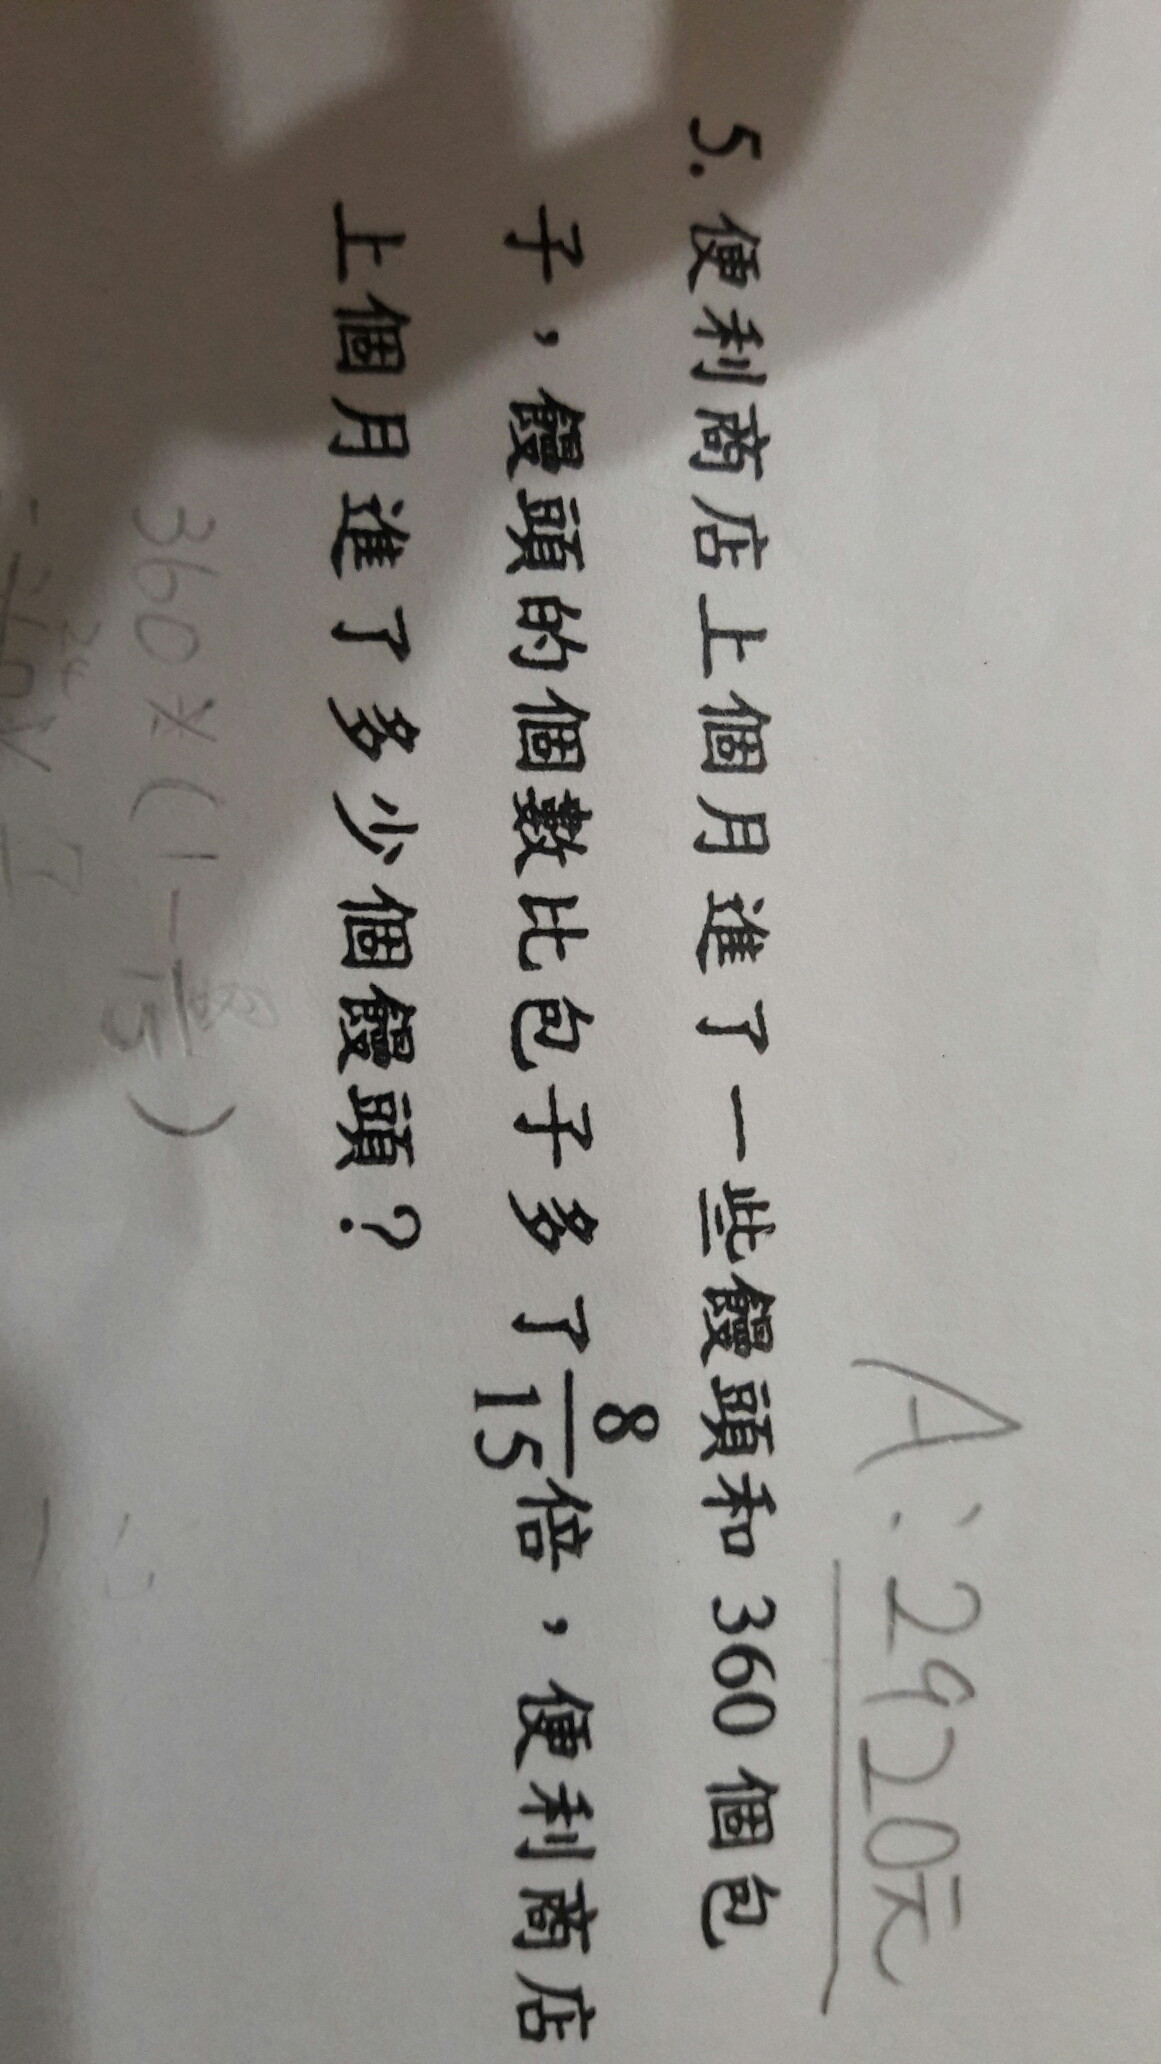 A：2920元
5. 便利商店上個月進了一些饅頭和 360 個包
子，饅頭的個數比包子多了 8/15 倍，便利商店
上個月進了多少個饅頭？
360×(1-8/15)
24